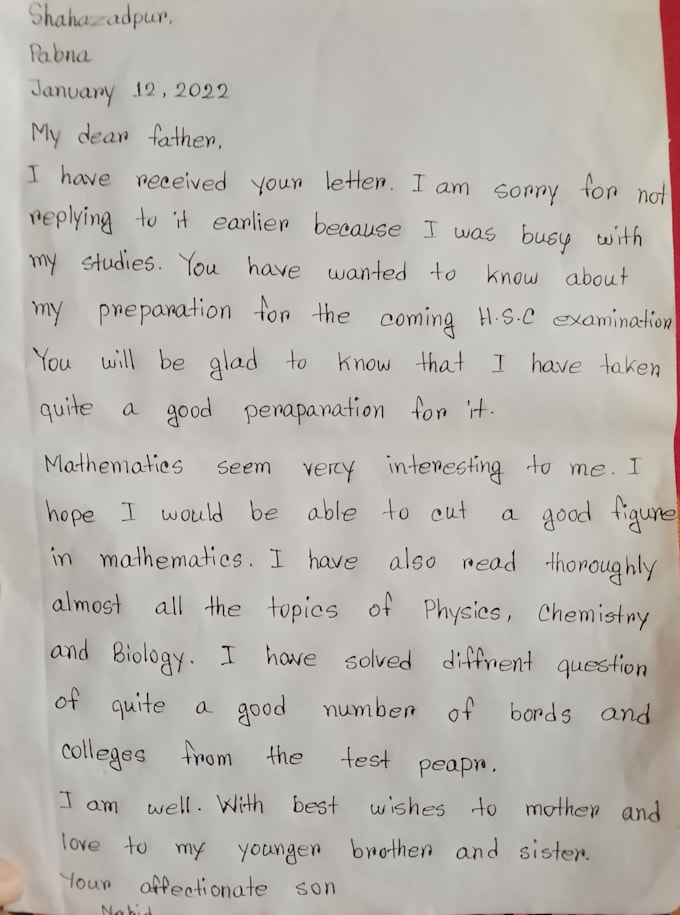 Shahazadpur.
Pabna
January 12, 2022
My dear father,
I have received your letter. I am sorry for not
replying to it earlier because I was busy with
my studies. You have wanted to know about
my preparation for the coming H.S.C examination
You will be glad to know that I have taken
quite a good peraparation for it.
Mathematics seem very interesting to me. I
hope I would be able to cut a good figure
in mathematics. I have also read thoroughly
almost all the topics of Physics, Chemistry
and Biology. I have solved diffrent question
of quite a good number of bords and
colleges from the test peapr.
I am well. With best wishes to mother and
love to my younger brother and sister.
Your affectionate son
Nahid